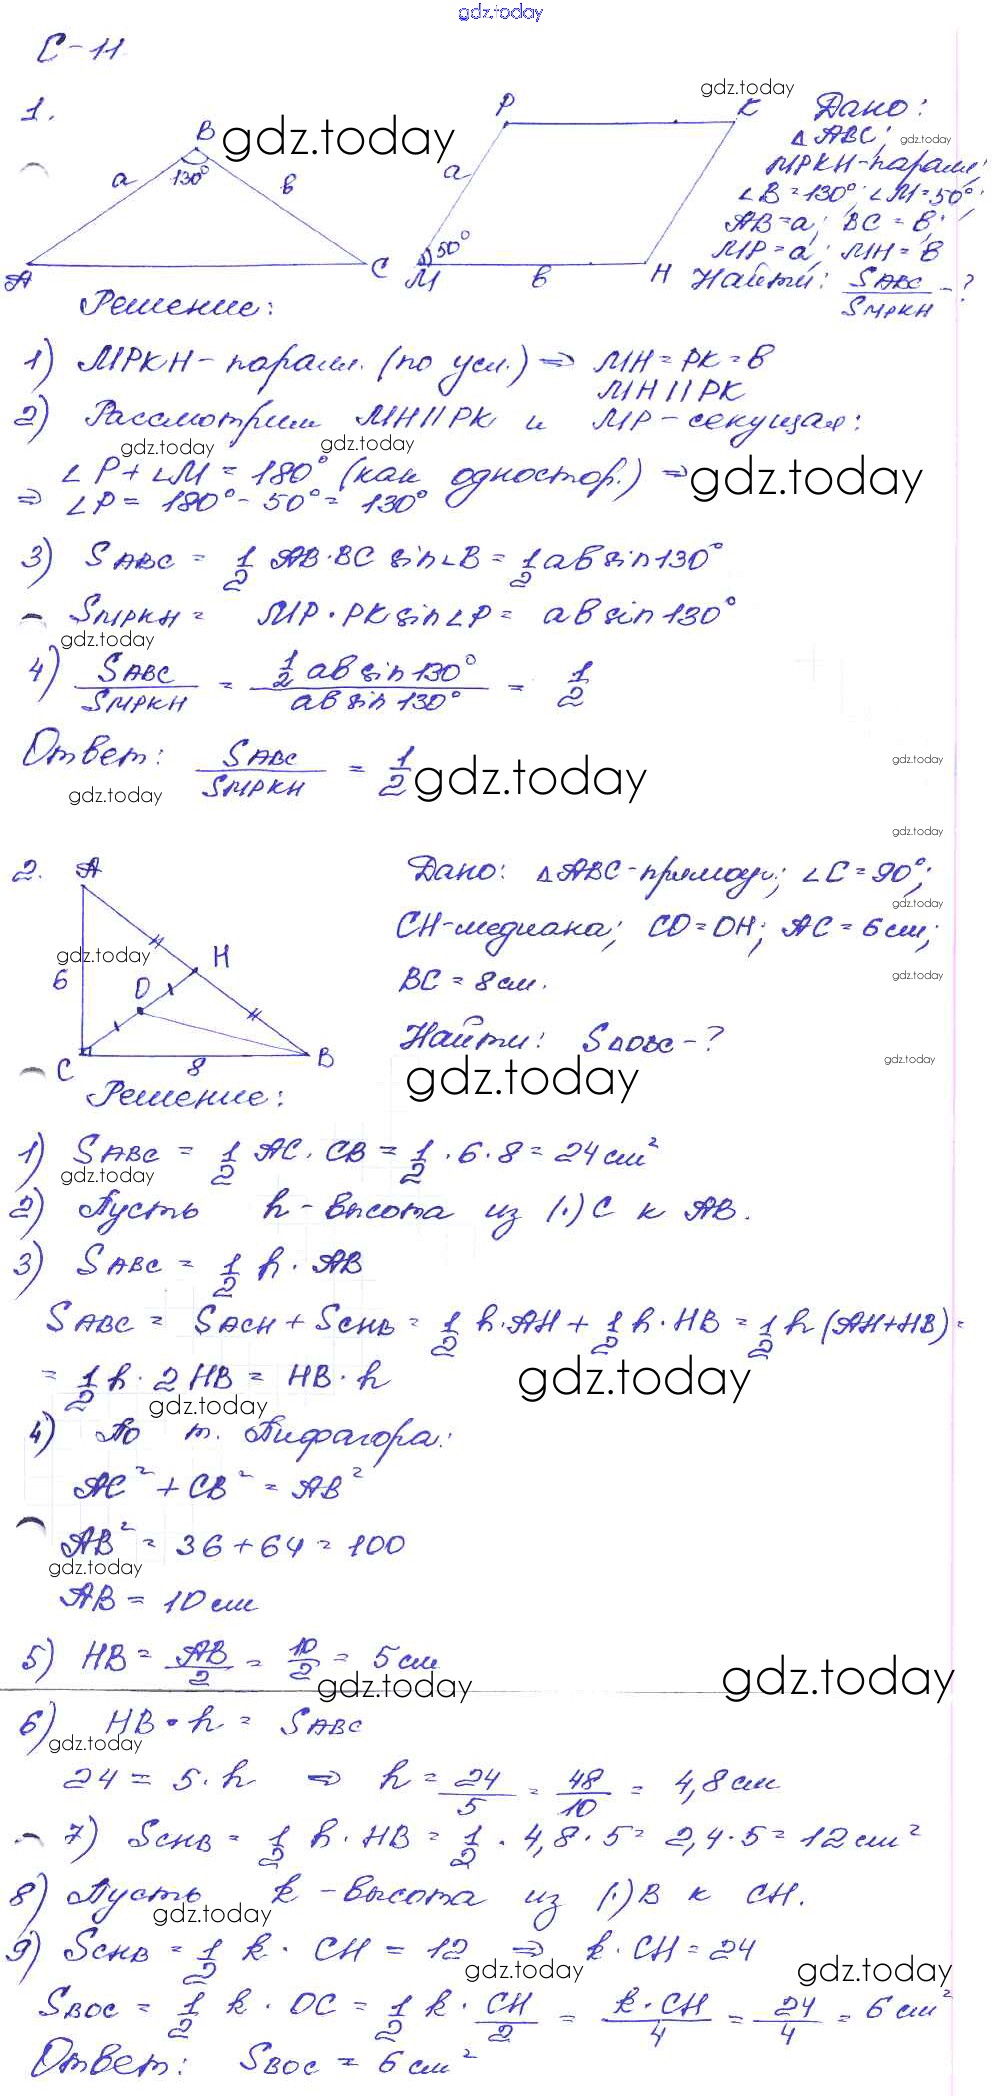 gdz.today
С-11
1.
B
130°
a
в
A
C
P
K
a
50°
M
в
H
gdz.today
gdz.today
Дано:
△ABC; gdz.today
MPKH-парал.;
∠B=130°; ∠M=50°;
AB=a; BC=в;
MP=a; MH=в
Найти: SABC/SMPKH - ?
Решение:
1) MPKH-парал. (по усл.) ⇒ MH=PK=в
MH||PK
2) Рассмотрим MH||PK и MP-секущая:
gdz.today gdz.today
∠P+∠M=180° (как одностор.) ⇒ gdz.today
⇒ ∠P=180°-50°=130°
3) SABC = 1/2 AB·BC sin∠B = 1/2 aв sin130°
SMPKH = MP·PK sin∠P = aв sin130°
gdz.today
4) SABC/SMPKH = 1/2 aв sin130°/aв sin130° = 1/2
Ответ: SABC/SMPKH = 1/2 gdz.today
gdz.today
gdz.today
gdz.today
2.
A
6
H
O
C
8
B
gdz.today
Дано: △ABC-прямоуг.; ∠C=90°;
gdz.today
CH-медиана; CO=OH; AC=6см;
BC=8см. gdz.today
Найти: S△OBC-?
gdz.today
gdz.today
Решение:
1) SABC = 1/2 AC·CB = 1/2·6·8=24см²
gdz.today
2) Пусть h-высота из (·)C к AB.
3) SABC = 1/2 h·AB
SABC = SACH + SCHB = 1/2 h·AH + 1/2 h·HB = 1/2 h(AH+HB) =
= 1/2 h·2HB = HB·h gdz.today
gdz.today
4) По т. Пифагора:
AC²+CB²=AB²
AB²=36+64=100
gdz.today
AB=10см
5) HB = AB/2 = 10/2 = 5см
gdz.today gdz.today
6) HB·h = SABC
gdz.today
24=5·h ⇒ h=24/5=48/10=4,8см
7) SCHB = 1/2 h·HB = 1/2·4,8·5=2,4·5=12см²
8) Пусть k-высота из (·)B к CH.
gdz.today
9) SCHB = 1/2 k·CH=12 ⇒ k·CH=24
gdz.today gdz.today
SBOC = 1/2 k·OC = 1/2 k·CH/2 = k·CH/4 = 24/4 = 6см²
Ответ: SBOC=6см²